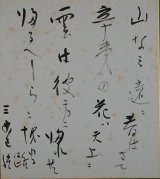 山なみ遠に春はきて
辛夷の花は天上に
雲は彼方に帰れ
帰るべしらに越ゆる路
三好達治